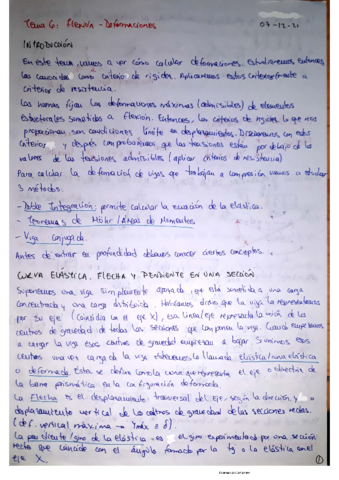 Tema 6: Flexión - Deformaciones 07-12-21
INTRODUCCIÓN
En este tema, vamos a ver cómo calcular deformaciones. Estudiaremos entonces
las conocidas como criterio de rigidez. Aplicaremos estos criterios frente a
criterio de resistencia.
Las normas fijan las deformaciones máximas (admisibles) de elementos
estructurales sometidos a flexión. Entonces, los criterios de rigidez lo que nos
proporcionan son condiciones límite en desplazamientos. Diseñamos con estos
criterios y después comprobaremos que las tensiones están por debajo de los
valores de las tensiones admisibles (aplicar criterios de resistencia)
Para calcular la deformación de vigas que trabajan a compresión vamos a estudiar
3 métodos:
- Doble Integración: permite calcular la ecuación de la elástica.
- Teoremas de Mohr / Áreas de Momentos
- Viga Conjugada.
Antes de entrar en profundidad debemos conocer ciertos conceptos.
CURVA ELÁSTICA, FLECHA Y PENDIENTE EN UNA SECCIÓN
Suponemos una viga simplemente apoyada, que está sometida a una carga
concentrada y una carga distribuida. Habíamos dicho que la viga la representamos
por su eje (coincidía con el eje X), esa línea/eje representaba la unión de los
centros de gravedad de todas las secciones que componen la viga. Cuando empezamos
a cargar la viga esos centros de gravedad empiezan a bajar. Si unimos esos
centros una vez cargada la viga obtenemos la llamada elástica/curva elástica
o deformada. Esta se define como la curva que representa el eje o directriz de
la barra prismática en la configuración deformada.
La flecha es el desplazamiento transversal del eje, según la dirección y, o
desplazamiento vertical de los centros de gravedad de las secciones rectas.
(def. vertical máxima
La pendiente/giro de la elástica - es el giro experimentado por una sección
recta que coincide con el ángulo formado por la tg a la elástica con el
eje X. 1